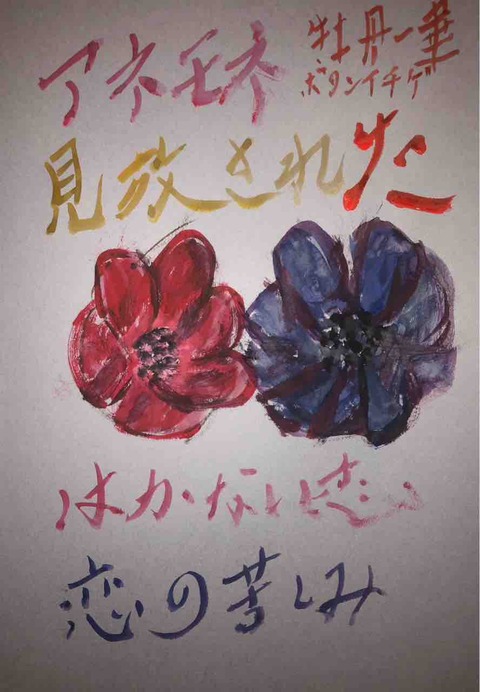 アネモネ
牡丹一華
ボタンイチゲ
見放された
はかない恋
恋の苦しみ